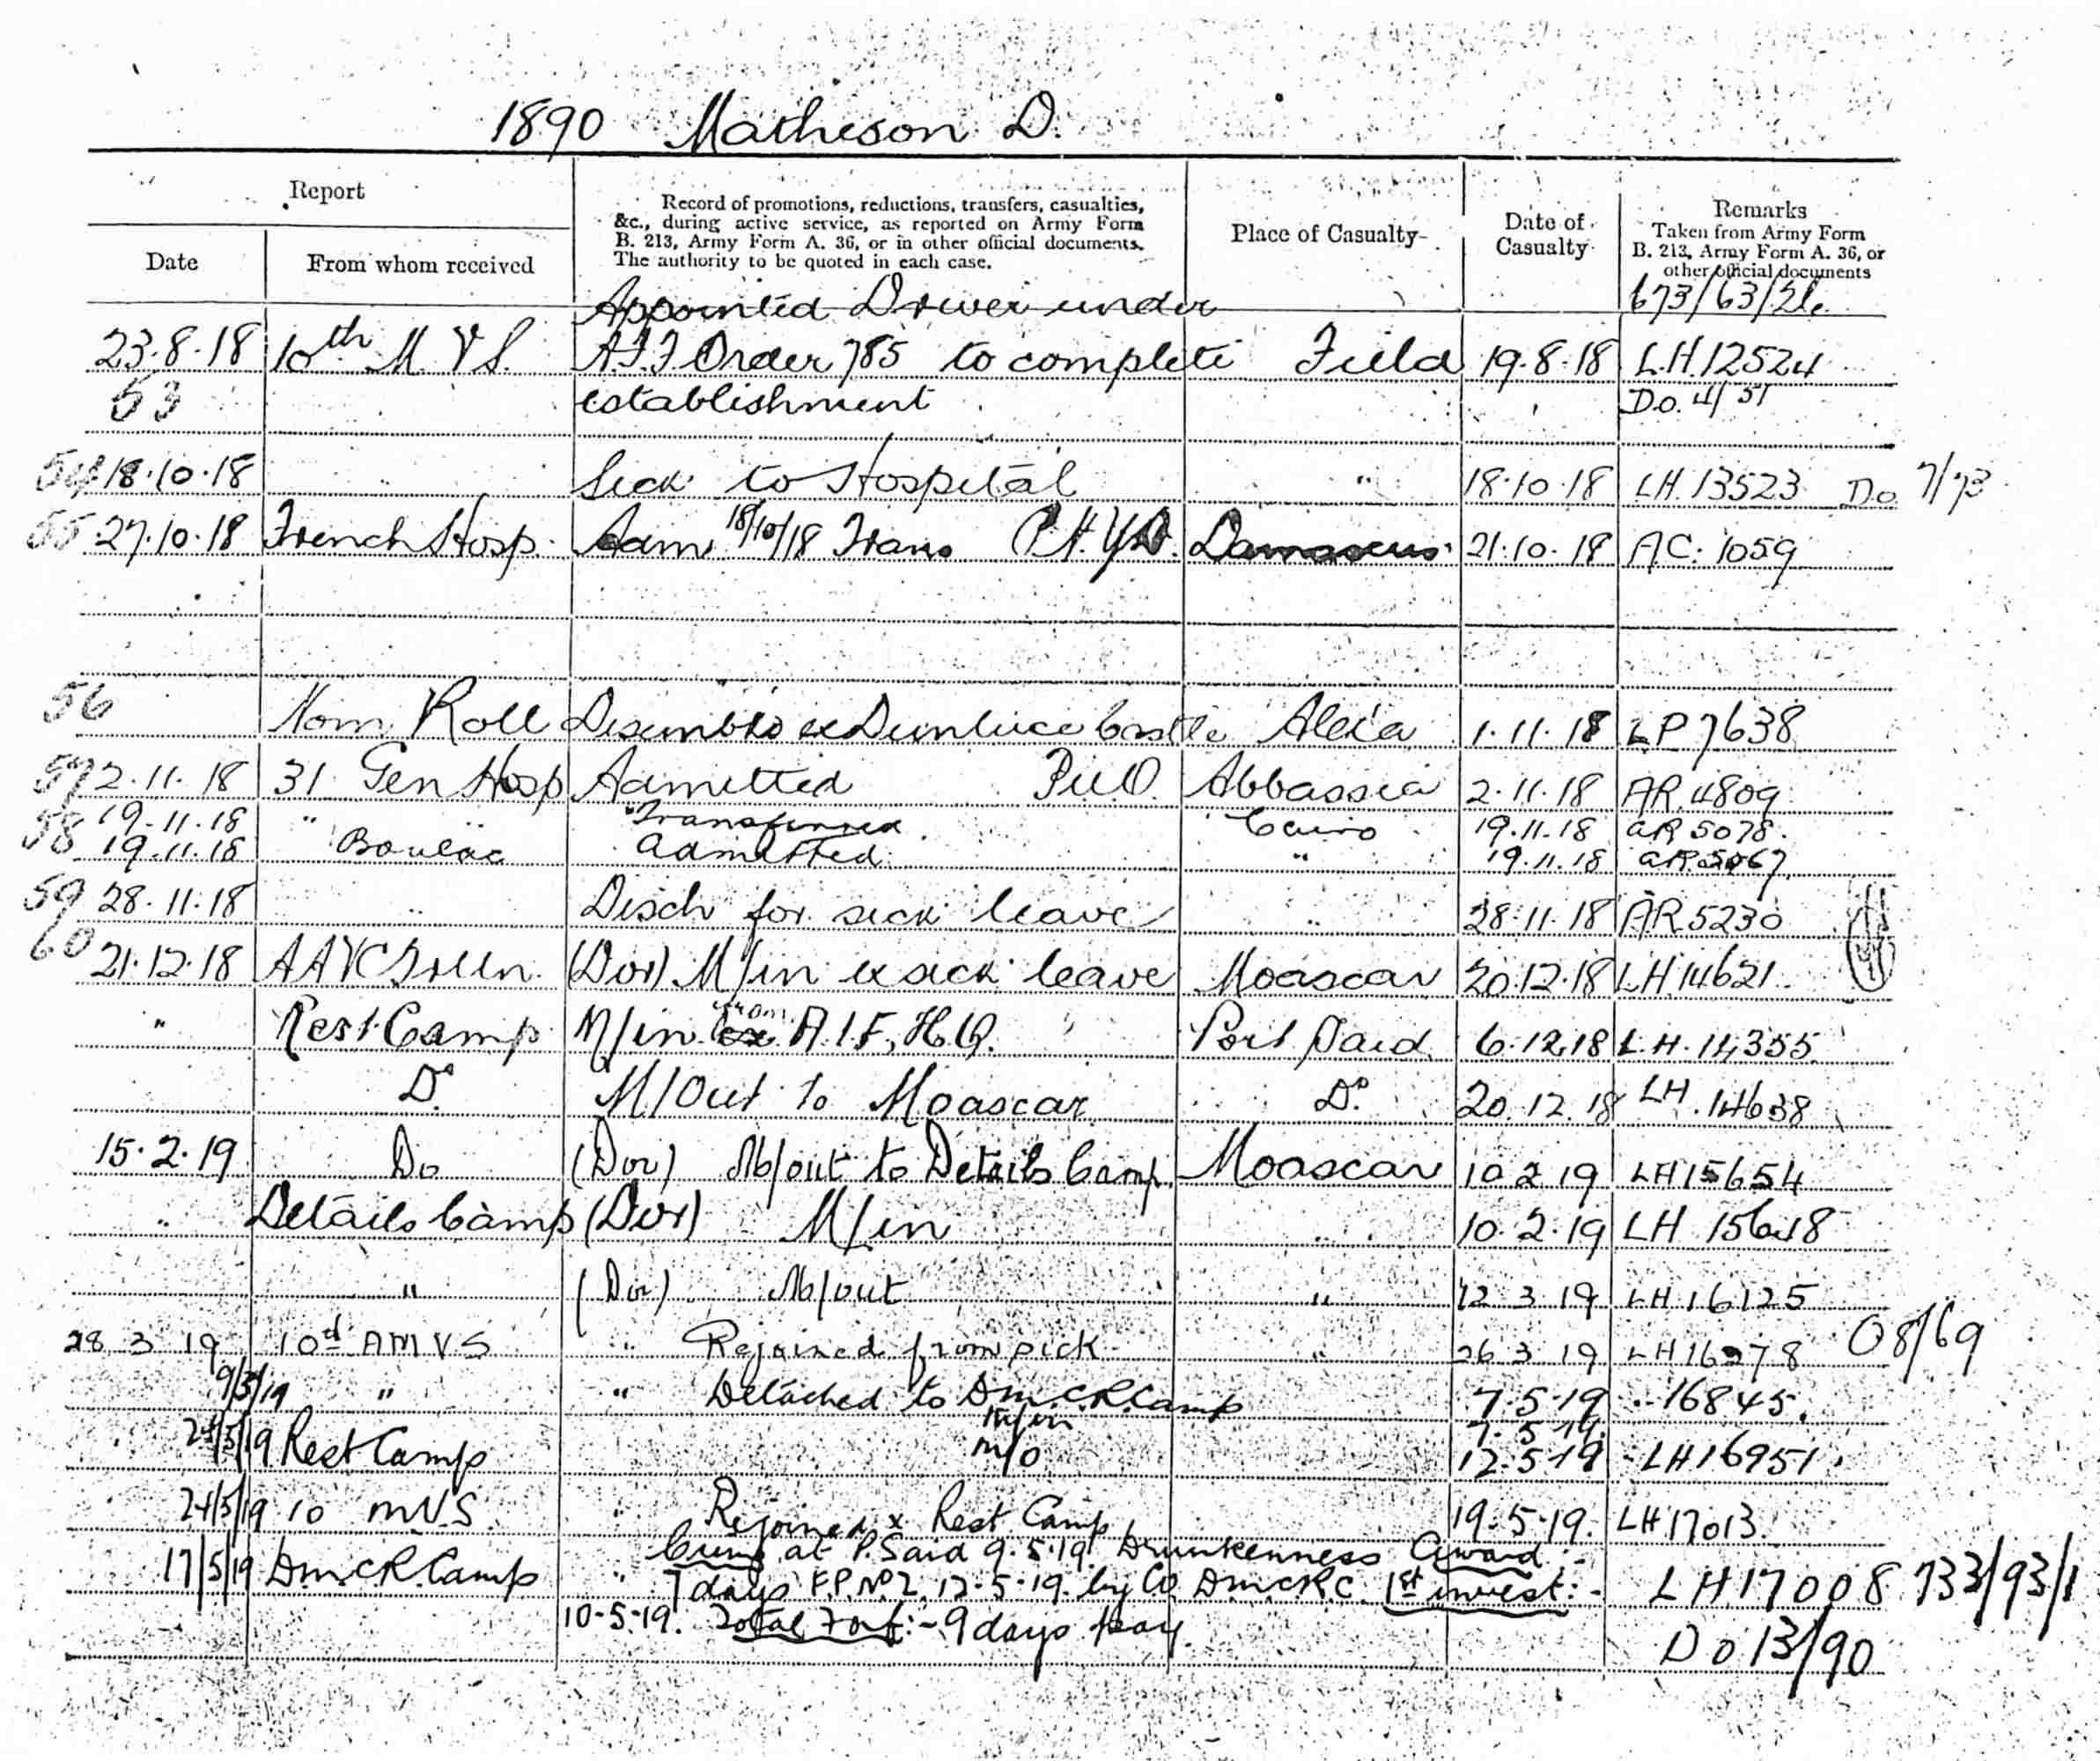 1890 Matheson D.
Report
Date
From whom received
Record of promotions, reductions, transfers, casualties,
&c., during active service, as reported on Army Form
B. 213, Army Form A. 36, or in other official documents.
The authority to be quoted in each case.
Place of Casualty
Date of
Casualty
Remarks
Taken from Army Form
B. 213, Army Form A. 36, or
other official documents
Appointed Driver under 673/63/26
23.8.18 10th M V S. A.I.F Order 785 to complete Field 19.8.18 L.H.12524
53 establishment D.o. 4/51
54 18.10.18 Sick to Hospital " 18.10.18 LH 13523 Do 7/73
55 27.10.18 French Hosp. Adm 18/10/18 Trans Damascus 21.10.18 A.C. 1059
56 Nom Roll Disembkd ex Dunluce Castle Alexa 1.11.18 LP 7638
57 2.11.18 31 Gen Hosp Admitted P.U.O. Abbassia 2.11.18 AR 4809
19.11.18 " Transferred Cairo 19.11.18 AR 5078.
58 19.11.18 Boulac Admitted " 19.11.18 AR 5067
59 28.11.18 .. Disch for sick leave .. 28.11.18 AR 5230
60 21.12.18 (Dvr) M/in ex sick leave Moascar 20.12.18 LH 14621
" Rest Camp M/in from A.I.F, H.Q. Port Said 6.12.18 L.H. 14355
Do M/Out to Moascar Do. 20.12.18 LH. 14638
15.2.19 Do (Dvr) M/out to Details Camp Moascar 10 2 19 LH 15654
.. Details Camp (Dvr) M/in .. 10.2.19 LH 15618
" (Dvr) M/out " 12 3 19 LH 16125
28 3 19 10th AMVS " Rejoined from sick " 26 3 19 LH 16278 08/69
9/5/19 " " Detached to D.M.C.R. Camp 7.5.19 .. 16845.
M/in 7.5.19.
24/5/19 Rest Camp M/O 12.5.19 LH 16951.
24/5/19 10 M.V.S. " Rejoined x Rest Camp 19.5.19. LH 17013.
Crime at P. Said 9.5.19 Drunkenness Award:-
17/5/19 D.M.C.R. Camp " 7 days F.P. No 2. 12.5.19. by CO D.M.C.R.C. 1st invest:- LH 17008 733/93/1
10.5.19. Total Forf:- 9 days pay. Do 13/90